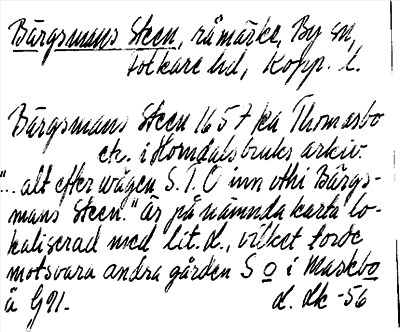 Bärgsmans Steen, råmärke, By sn,
Folkare hd, Kopp. l.
Bärgsmans Steen 1657 ka Thomasbo
etc. i Horndalsbruks arkiv.
"... alt efter wägen S.T.O inn vthi Bärgs-
mans Steen." är på nämnda karta lo-
kaliserad med lit. d., vilket torde
motsvara andra gården S o i Maskbo
å G91. d. dk -56